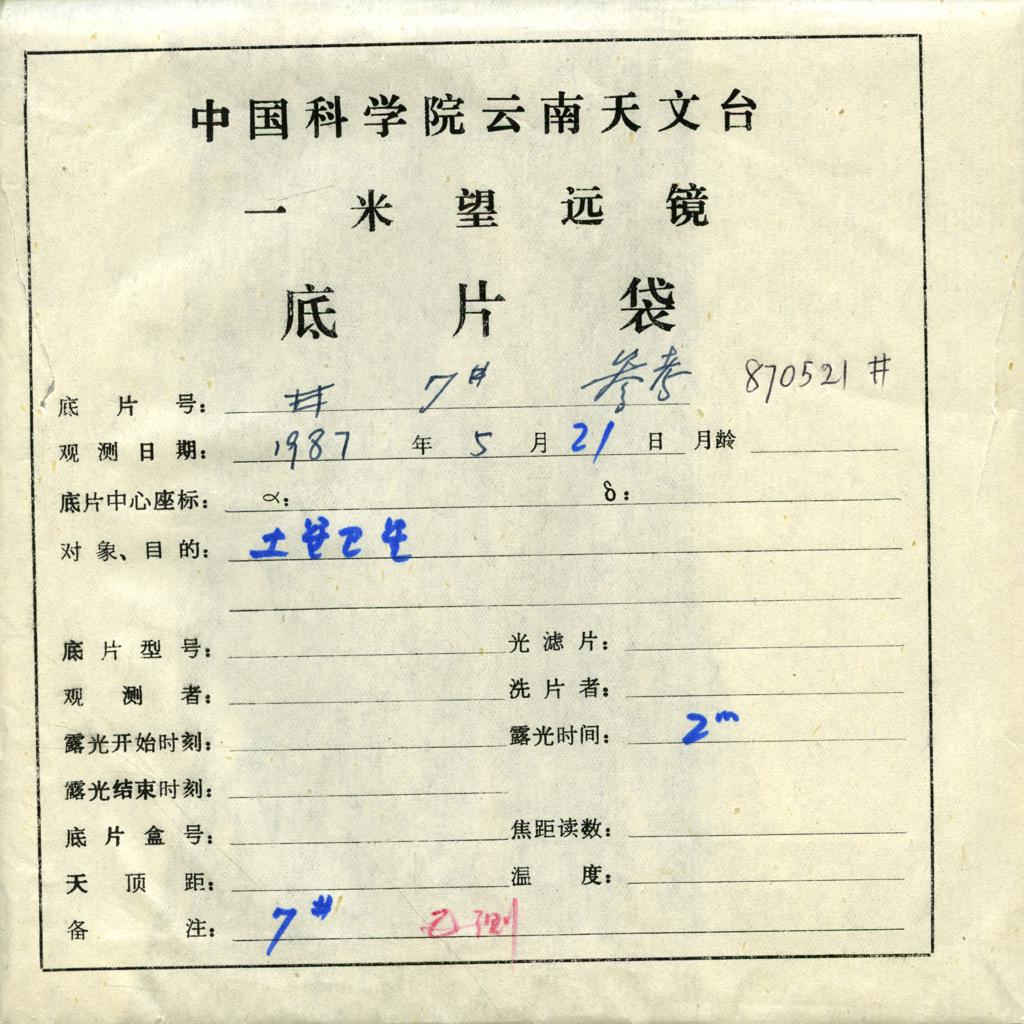 中国科学院云南天文台
一米望远镜
底片袋
底片号： # 7# 参考 870521#
观测日期： 1987 年 5 月 21 日 月龄
底片中心座标： α： δ：
对象、目的： 土星卫星
底片型号： 光滤片：
观测者： 洗片者：
露光开始时刻： 露光时间： 2m
露光结束时刻：
底片盒号： 焦距读数：
天顶距： 温度：
备注： 7# 已测